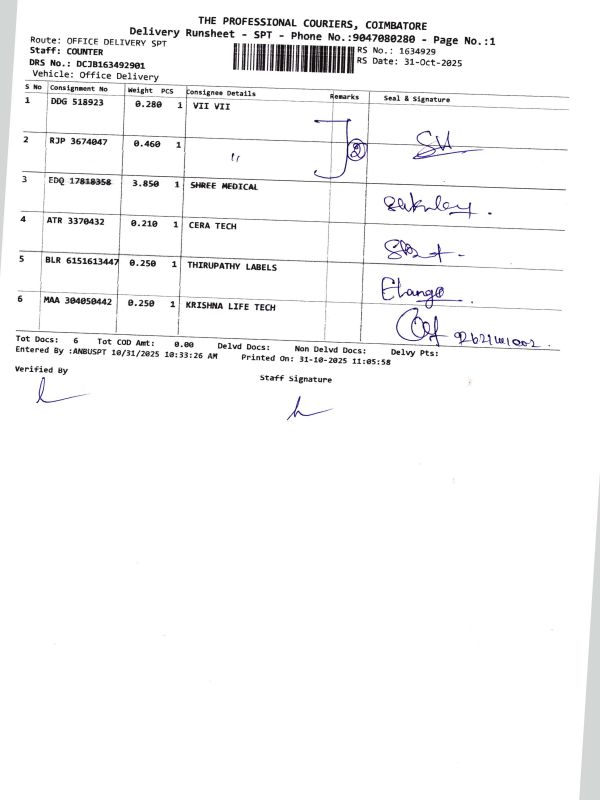 THE PROFESSIONAL COURIERS, COIMBATORE
Delivery Runsheet - SPT - Phone No.:9047080280 - Page No.:1
Route: OFFICE DELIVERY SPT
Staff: COUNTER
RS No.: 1634929
DRS No.: DCJB163492901
RS Date: 31-Oct-2025
Vehicle: Office Delivery
S No Consignment No Weight PCS Consignee Details Remarks Seal & Signature
1 DDG 518923 0.280 1 VII VII
2 RJP 3674047 0.460 1 " 2
3 EDQ 17818358 3.850 1 SHREE MEDICAL
4 ATR 3370432 0.210 1 CERA TECH
5 BLR 6151613447 0.250 1 THIRUPATHY LABELS Elango
6 MAA 304050442 0.250 1 KRISHNA LIFE TECH
Tot Docs: 6 Tot COD Amt: 0.00 Delvd Docs: Non Delvd Docs: Delvy Pts:
Entered By :ANBUSPT 10/31/2025 10:33:26 AM Printed On: 31-10-2025 11:05:58
Verified By
Staff Signature